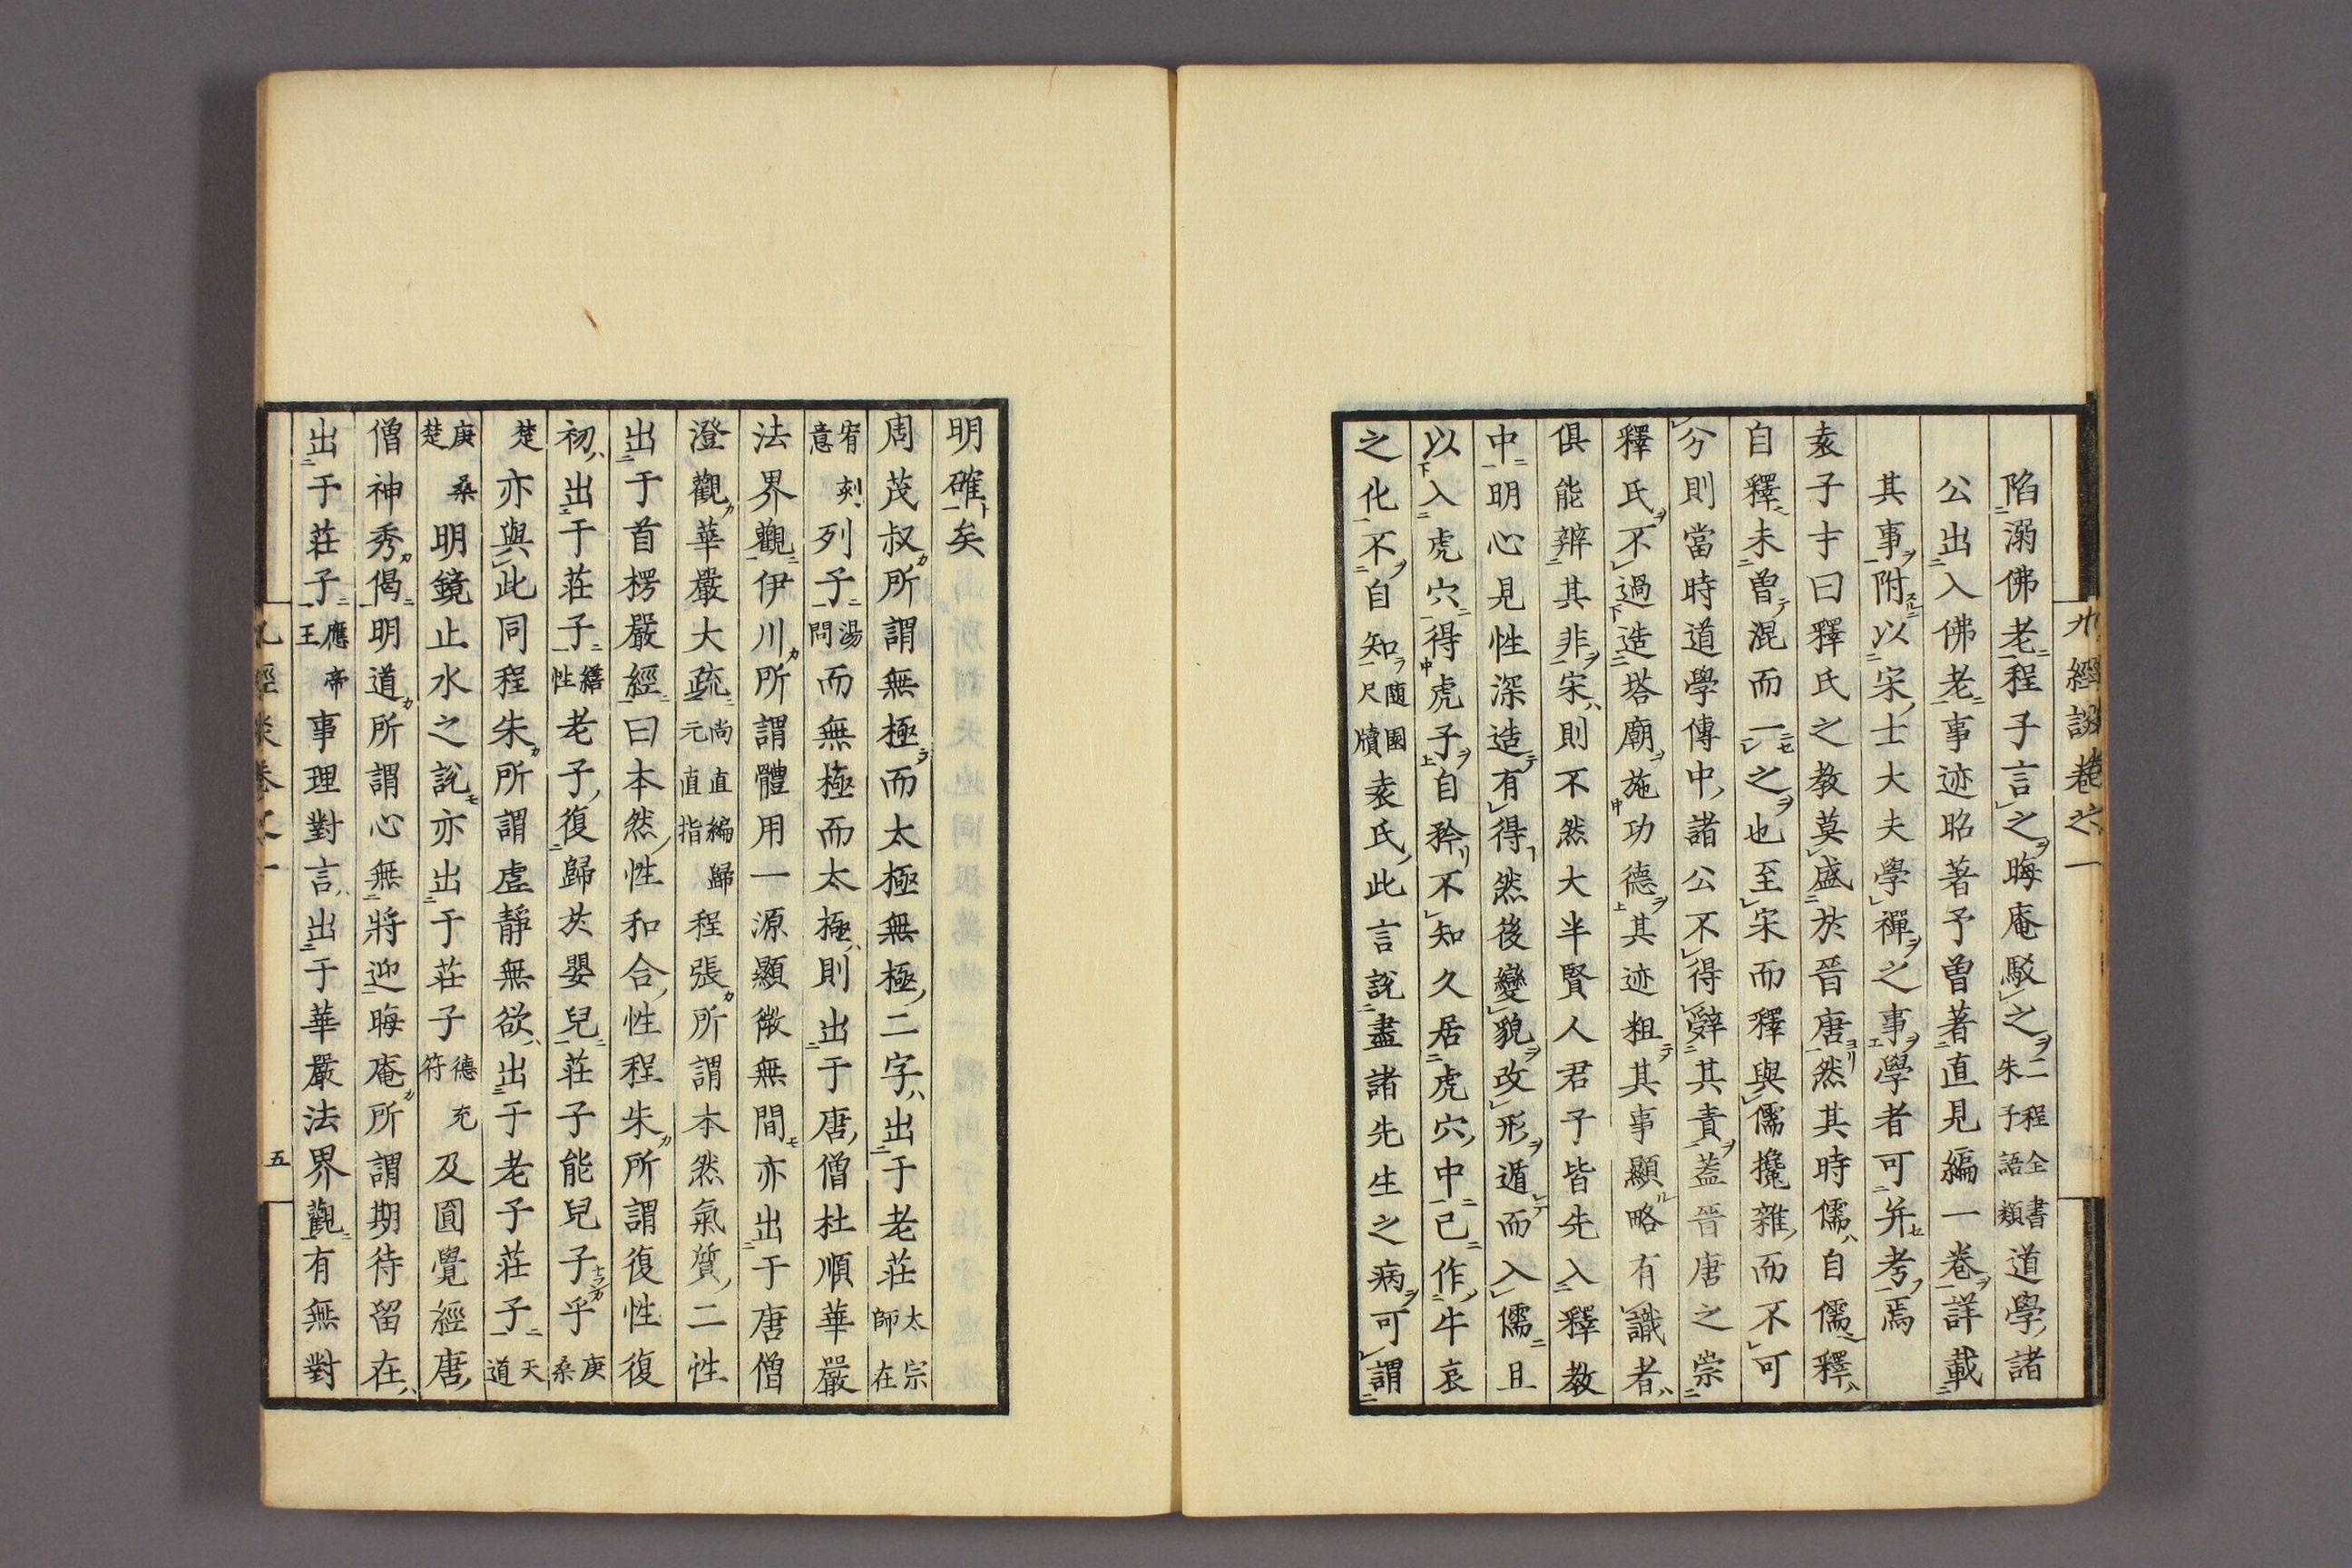 九經談卷之一
陷溺佛老程子言之晦庵駁之二程全書朱子語類道學諸
公出入佛老事迹昭著予曾著直見編一卷詳載
其事附以宋士大夫學禪之事學者可并考焉
袁子才曰釋氏之教莫盛於晉唐然其時儒自儒釋
自釋未曾混而一之也至宋而釋與儒攙雜而不可
分則當時道學傳中諸公不得辭其責蓋晉唐之崇
釋氏不過造塔廟施功德其迹粗其事顯略有識者
俱能辨其非宋則不然大半賢人君子皆先入釋教
中明心見性深造有得然後變貌改形遁而入儒且
以入虎穴得虎子自矜不知久居虎穴中已作牛哀
之化不自知隨園尺牘袁氏此言說盡諸先生之病可謂
明確矣
周茂叔所謂無極而太極無極二字出于老莊太宗師在
宥意刻列子湯問而無極而太極則出于唐僧杜順華嚴
法界觀伊川所謂體用一源顯微無間亦出于唐僧
澄觀華嚴大疏尚直編歸元直指程張所謂本然氣質二性
出于首楞嚴經曰本然性和合性程朱所謂復性復
初出于莊子繕性老子復歸於嬰兒莊子能兒子乎庚桑
楚亦與此同程朱所謂虛靜無欲出于老子莊子天道
庚桑楚明鏡止水之說亦出于莊子德充符及圓覺經唐
僧神秀偈明道所謂心無將迎晦庵所謂期待留在
出于莊子應帝王事理對言出于華嚴法界觀有無對
九經談卷之一
五